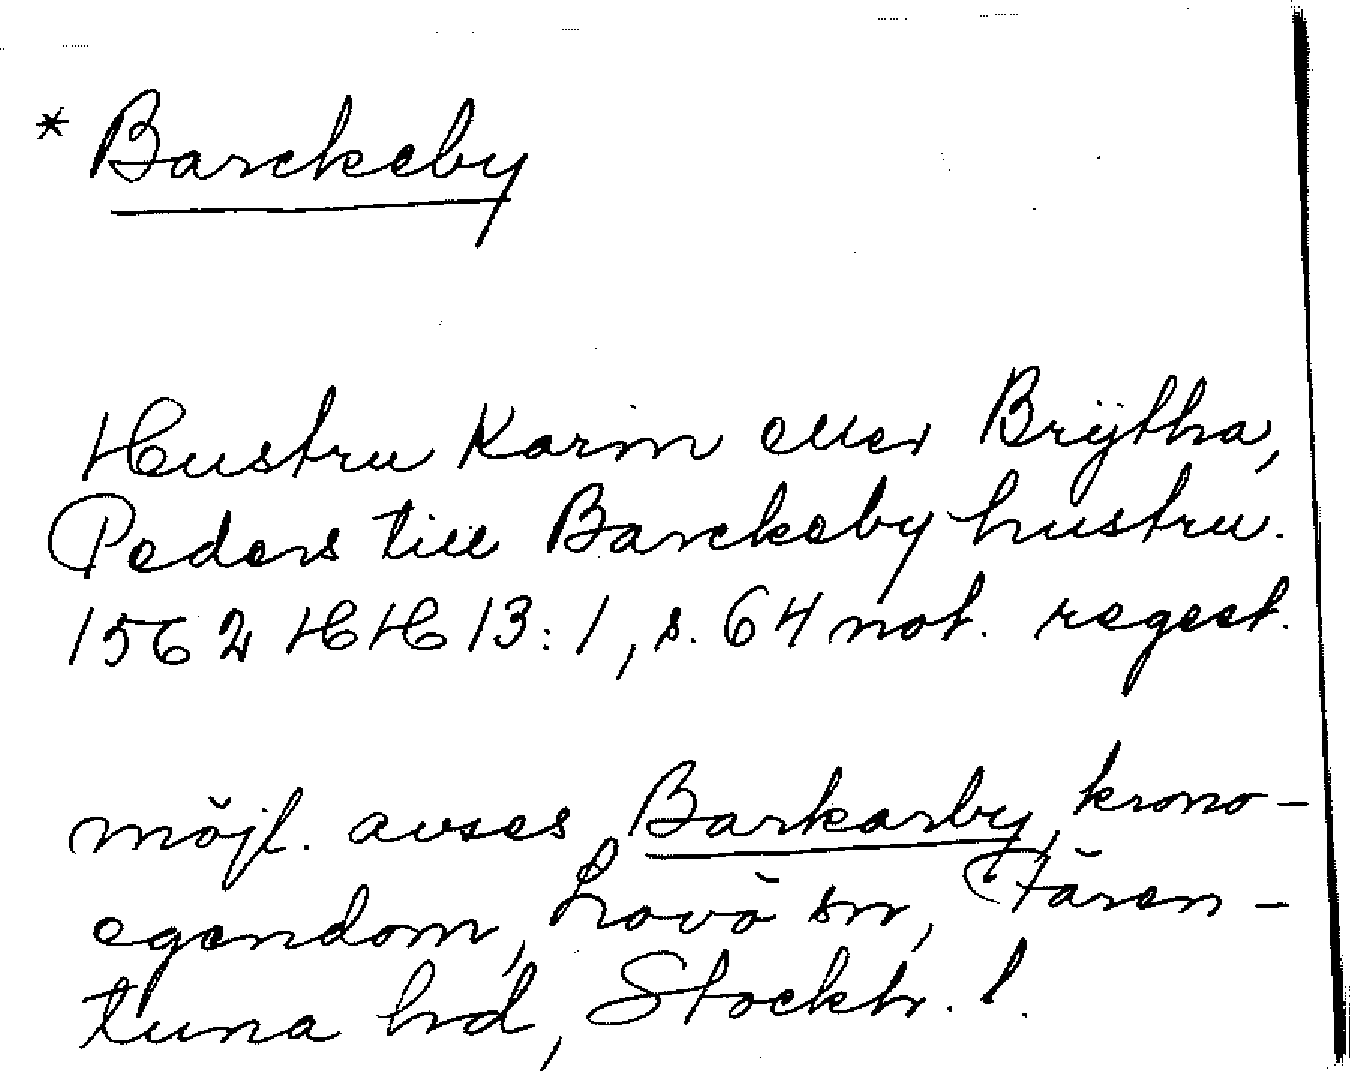 * Barckeby
Hustru Karin eller Brÿtha,
Peders till Barckeby hustru.
1562 HH 13:1, s. 64 not. regest.
möjl. avses Barkarby, krono-
egendom, Lovö sn, Fären-
tuna hd, Stockh. l.